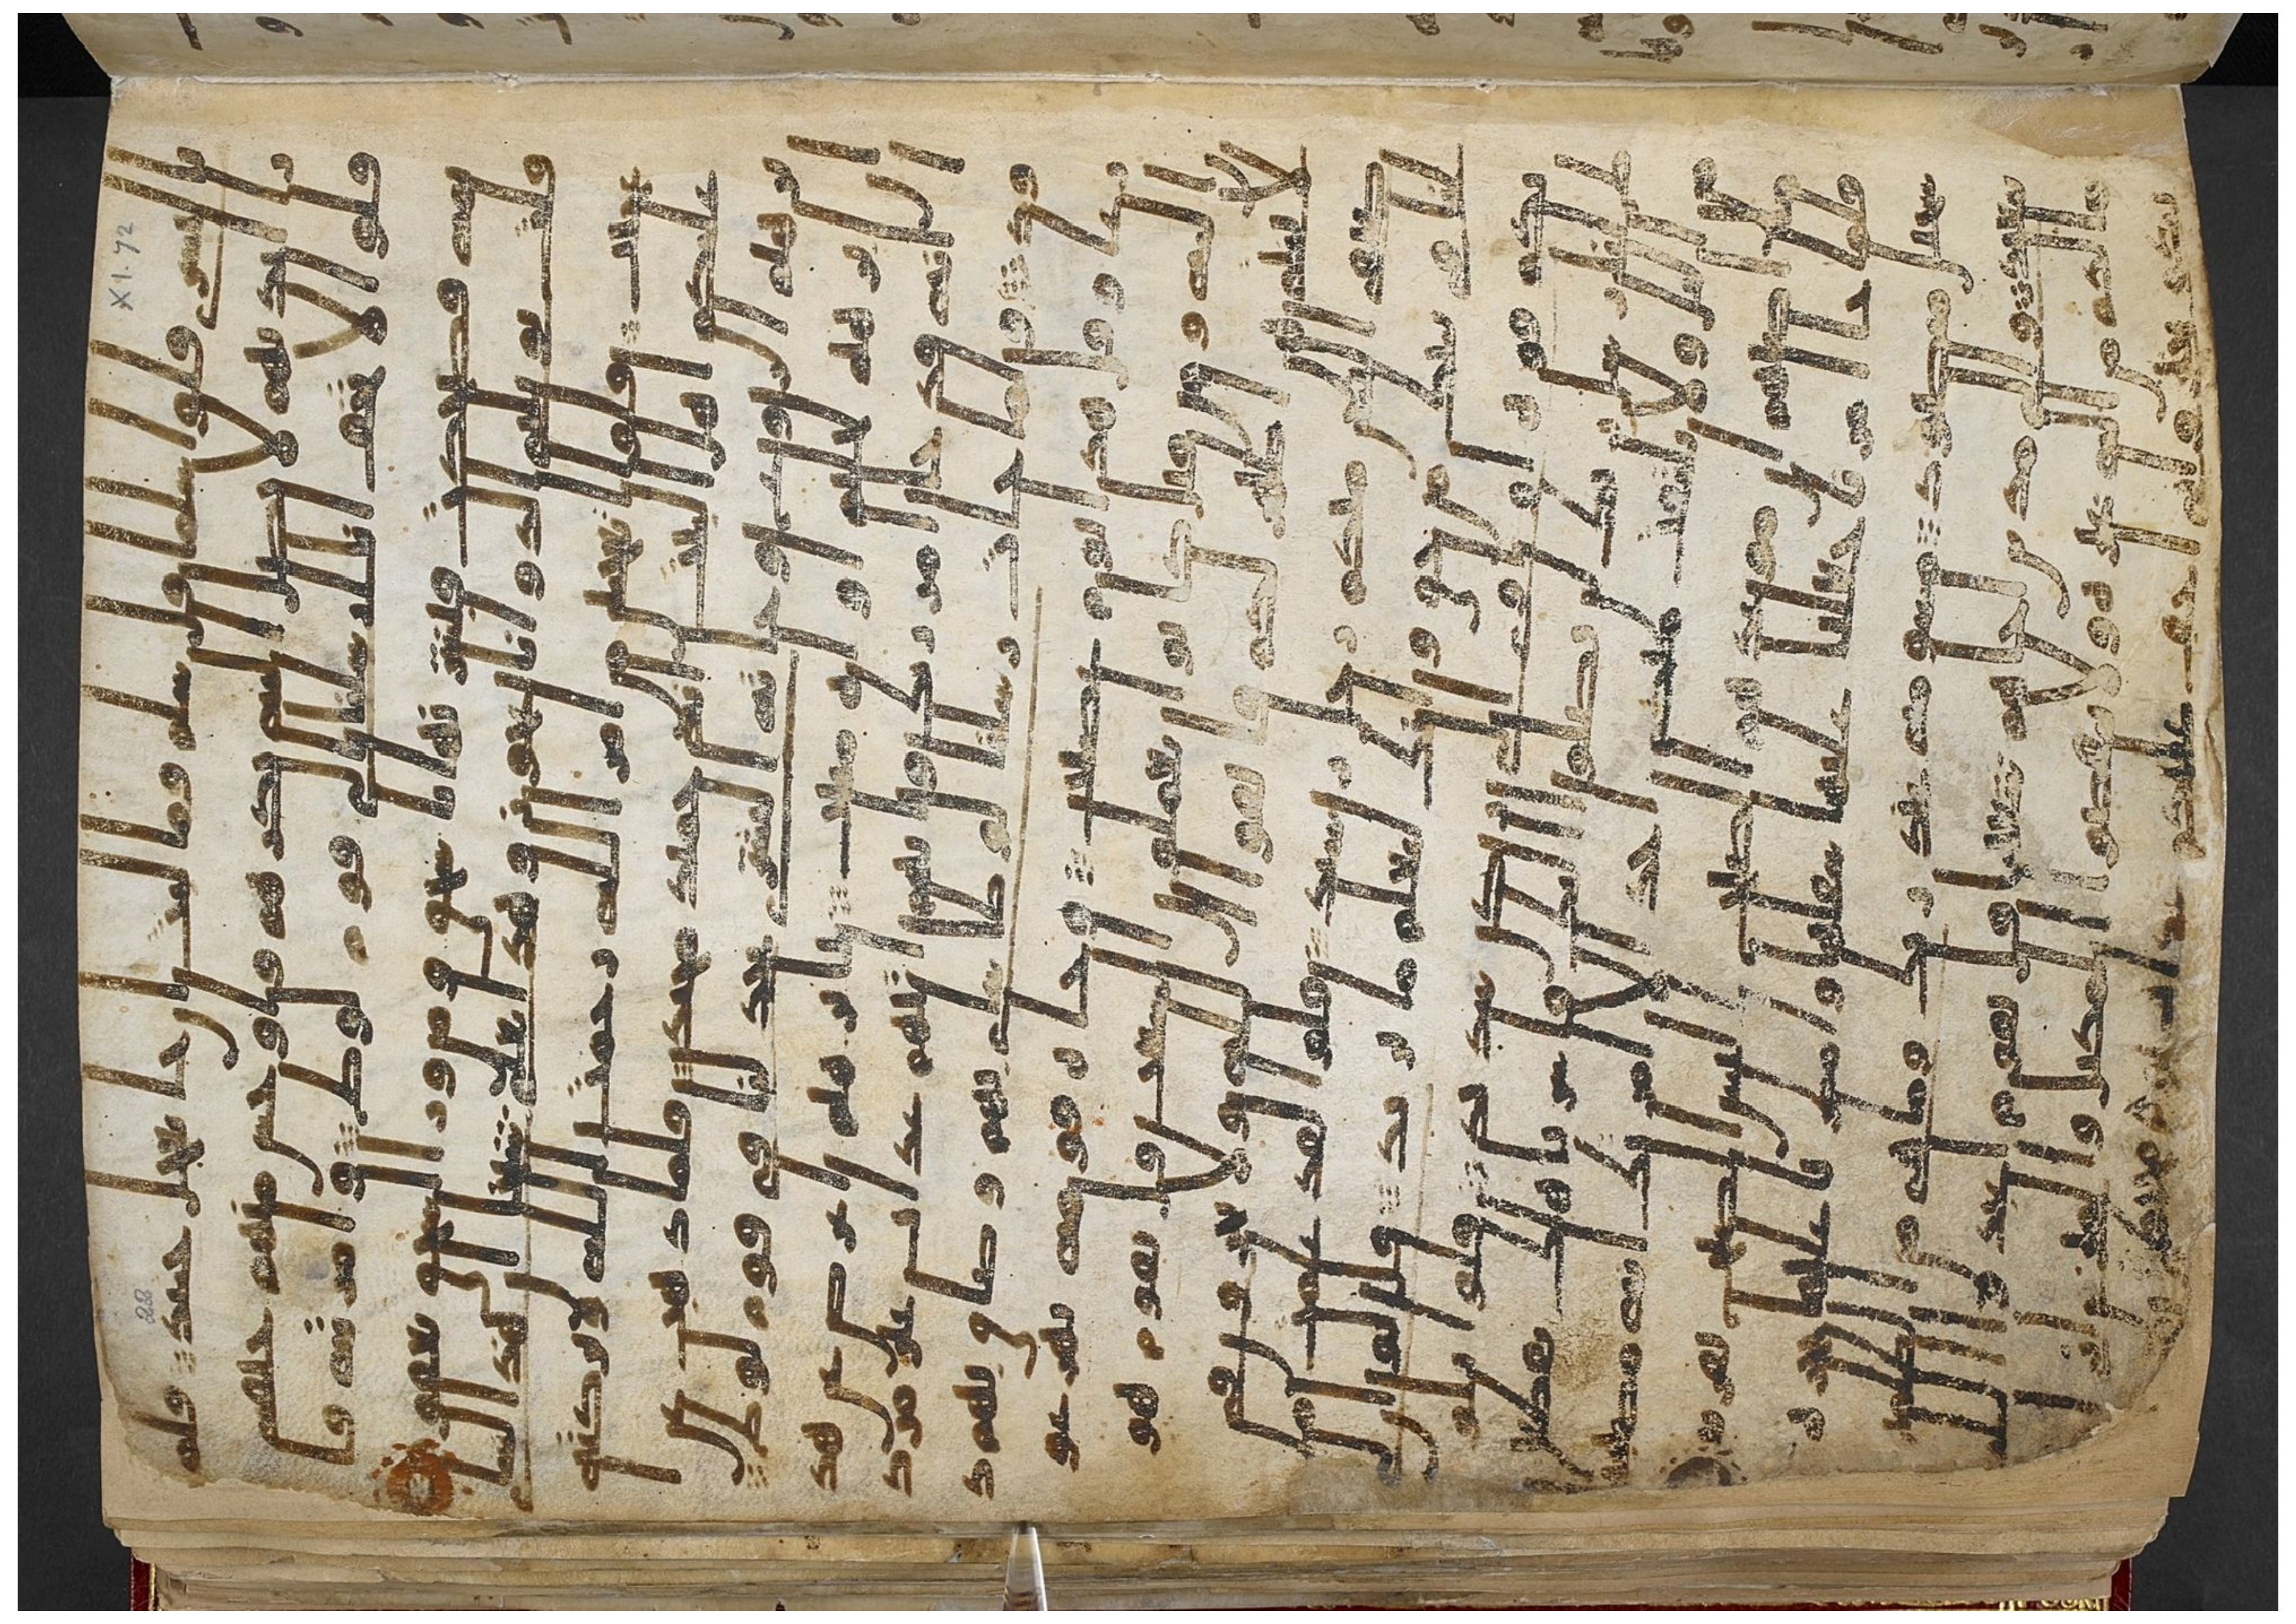 بالبشرى قالوا سلما قال سلم فما لبث ان جا بعجل حنيذ فلما
را ايديهم لا تصل اليه نكرهم واوجس منهم خيفه
قالوا لا تخف انا ارسلنا الى قوم لوط وامراته قا
ئمه فضحكت فبشرنها باسحق ومن ورا اسحق يعقوب
قالت يويلتى الد وانا عجوز وهذا بعلى شيخا ان هذا لشى
عجيب قالوا اتعجبين من امر الله رحمت الله وبركته
عليكم اهل البيت انه حميد مجيد فلما ذهب عن ا
برهيم الروع وجاته البشرى يجدلنا فى قوم لوط
ان ابرهيم لحليم اوه منيب يابرهيم اعرض عن هذ
ا انه قد جا امر ربك وانهم اتيهم عذب غير مردود
ولما جات رسلنا لوطا سى بهم وضاق بهم ذ
رعا وقال هذا يوم عصيب وجاه قومه يهرعون
اليه ومن قبل كانوا يعملون السيات قال يقوم هو
لا بناتى هن اطهر لكم فاتقوا الله ولا تخزون فى
ضيفى اليس منكم رجل رشيد قالوا لقد علمت ما
لنا فى بناتك من حق وانك لتعلم ما نريد قال لو ان لى
بكم قوه او اوى الى ركن شديد قالوا يلوط انا
رسل ربك لن يصلوا اليك فاسر باهلك بقطع
من اليل ولا يلتفت منكم احد الا امراتك انه مصيبها
ما اصابهم ان موعدهم الصبح اليس الصبح بقر
يب فلما جا امرنا جعلنا عليها سافلها وامطرنا
عليها حجره من سجيل منضود مسومه عند ربك وما هى من ا
لظلمين ببعيد والى مدين اخاهم شعيبا قال يقوم ا
عبدوا الله ما لكم من اله غيره ولا تنقصوا المكيال والميزان
XI.72
22